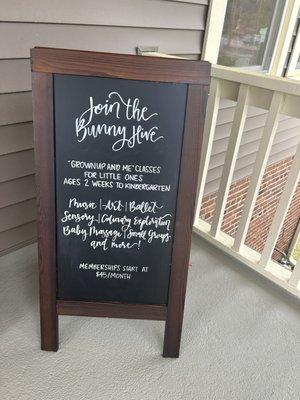 Join the
Bunny Hive
"GROWNUP AND ME" CLASSES
FOR LITTLE ONES
AGES 2 WEEKS TO KINDERGARTEN
Music | Art | Ballet
Sensory | Culinary Exploration
Baby Massage | Small Groups
and more!
MEMBERSHIPS START AT
$45/MONTH